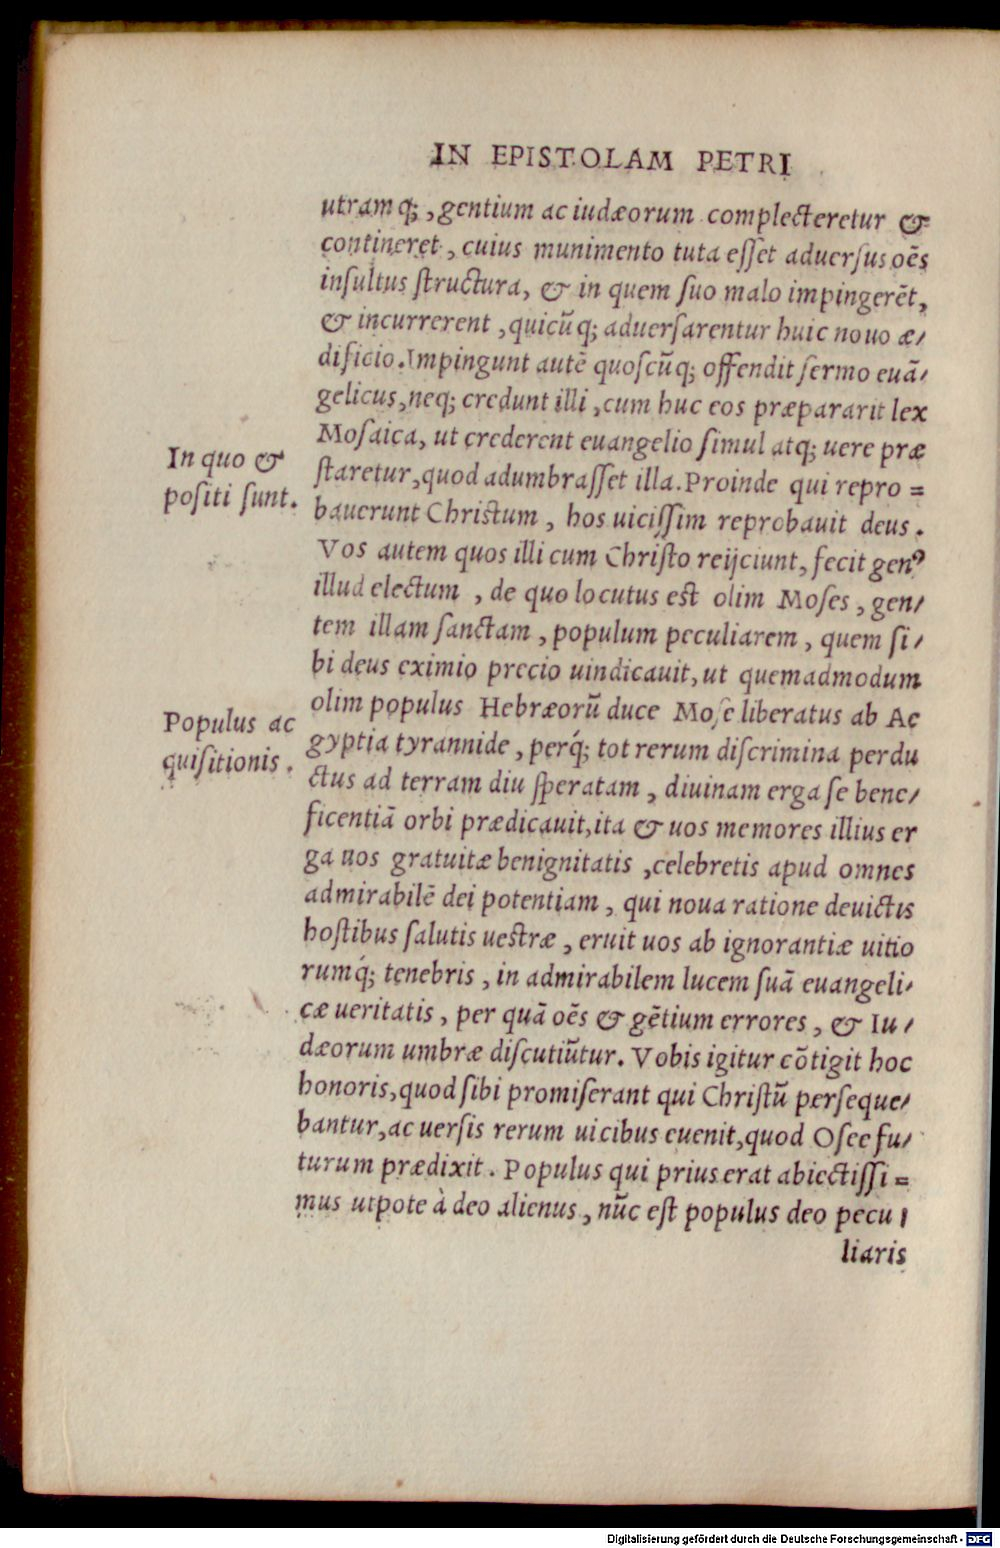 IN EPISTOLAM PETRI
utramq;, gentium ac iudæorum complecteretur &
contineret, cuius munimento tuta esset aduersus oẽs
insultus structura, & in quem suo malo impingerẽt,
& incurrerent, quicũq; aduersarentur huic nouo æ/
dificio. Impingunt autẽ quoscũq; offendit sermo euã/
gelicus, neq; credunt illi, cum huc eos præpararit lex
Mosaica, ut crederent euangelio simul atq; uere præ
In quo &
positi sunt.
staretur, quod adumbrasset illa. Proinde qui repro=
bauerunt Christum, hos uicissim reprobauit deus.
Vos autem quos illi cum Christo reijciunt, fecit genꝰ
illud electum, de quo locutus est olim Moses, gen/
tem illam sanctam, populum peculiarem, quem si/
bi deus eximio precio uindicauit, ut quemadmodum
olim populus Hebræorũ duce Mose liberatus ab Ae
Populus ac
quisitionis.
gyptia tyrannide, perq́; tot rerum discrimina perdu
ctus ad terram diu speratam, diuinam erga se bene/
ficentiã orbi prædicauit, ita & uos memores illius er
ga uos gratuitæ benignitatis, celebretis apud omnes
admirabilẽ dei potentiam, qui noua ratione deuictis
hostibus salutis uestræ, eruit uos ab ignorantiæ uitio
rumq́; tenebris, in admirabilem lucem suã euangeli/
cæ ueritatis, per quã oẽs & gẽtium errores, & Iu/
dæorum umbræ discutiũtur. Vobis igitur cõtigit hoc
honoris, quod sibi promiserant qui Christũ perseque/
bantur, ac uersis rerum uicibus euenit, quod Osee fu/
turum prædixit. Populus qui prius erat abiectissi=
mus utpote à deo alienus, nũc est populus deo pecu/
liaris
Digitalisierung gefördert durch die Deutsche Forschungsgemeinschaft - DFG